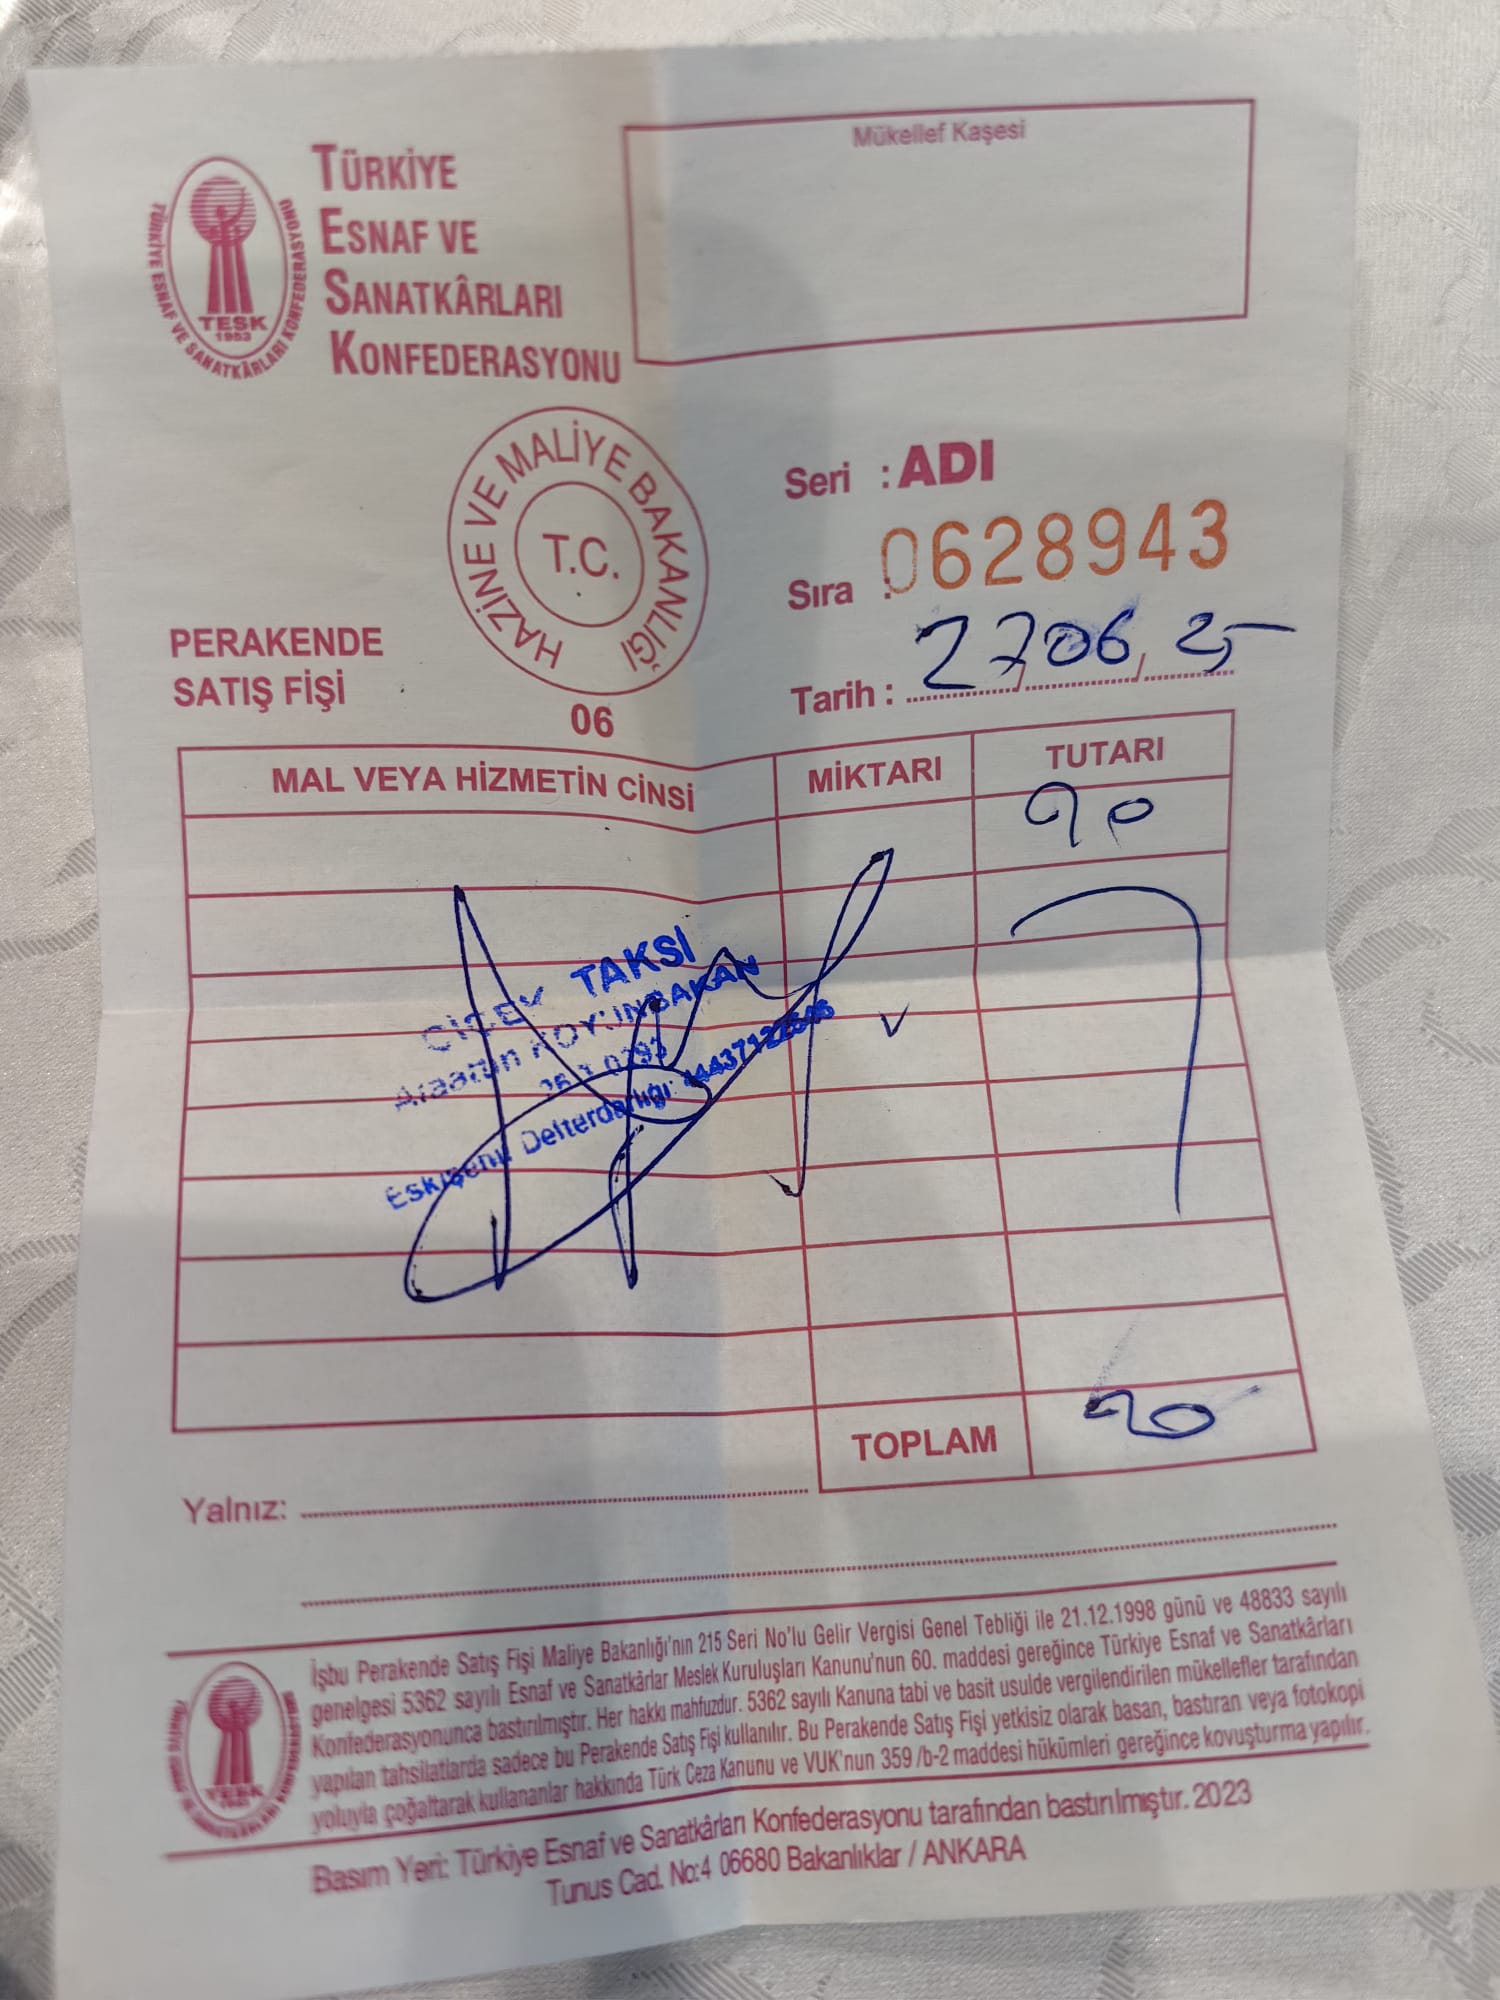 TÜRKİYE ESNAF VE SANATKÂRLARI KONFEDERASYONU
TESK
1953
TÜRKİYE
ESNAF VE
SANATKÂRLARI
KONFEDERASYONU
Mükellef Kaşesi
HAZİNE VE MALİYE BAKANLIĞI
T.C.
06
Seri : ADI
Sıra : 0628943
PERAKENDE
SATIŞ FİŞİ
Tarih : 27/06/25
MAL VEYA HİZMETİN CİNSİ MİKTARI TUTARI
90
ÇİÇEK TAKSİ
Alaattin KOYUNBAKAN
Eskişehir Defterdarlığı:
TOPLAM
Yalnız:
İşbu Perakende Satış Fişi Maliye Bakanlığı'nın 215 Seri No'lu Gelir Vergisi Genel Tebliği ile 21.12.1998 günü ve 48833 sayılı
genelgesi 5362 sayılı Esnaf ve Sanatkârlar Meslek Kuruluşları Kanunu'nun 60. maddesi gereğince Türkiye Esnaf ve Sanatkârları
Konfederasyonunca bastırılmıştır. Her hakkı mahfuzdur. 5362 sayılı Kanuna tabi ve basit usulde vergilendirilen mükellefler tarafından
yapılan tahsilatlarda sadece bu Perakende Satış Fişi kullanılır. Bu Perakende Satış Fişi yetkisiz olarak basan, bastıran veya fotokopi
yoluyla çoğaltarak kullananlar hakkında Türk Ceza Kanunu ve VUK'nun 359 /b-2 maddesi hükümleri gereğince kovuşturma yapılır.
TESK
Basım Yeri: Türkiye Esnaf ve Sanatkârları Konfederasyonu tarafından bastırılmıştır. 2023
Tunus Cad. No:4 06680 Bakanlıklar / ANKARA